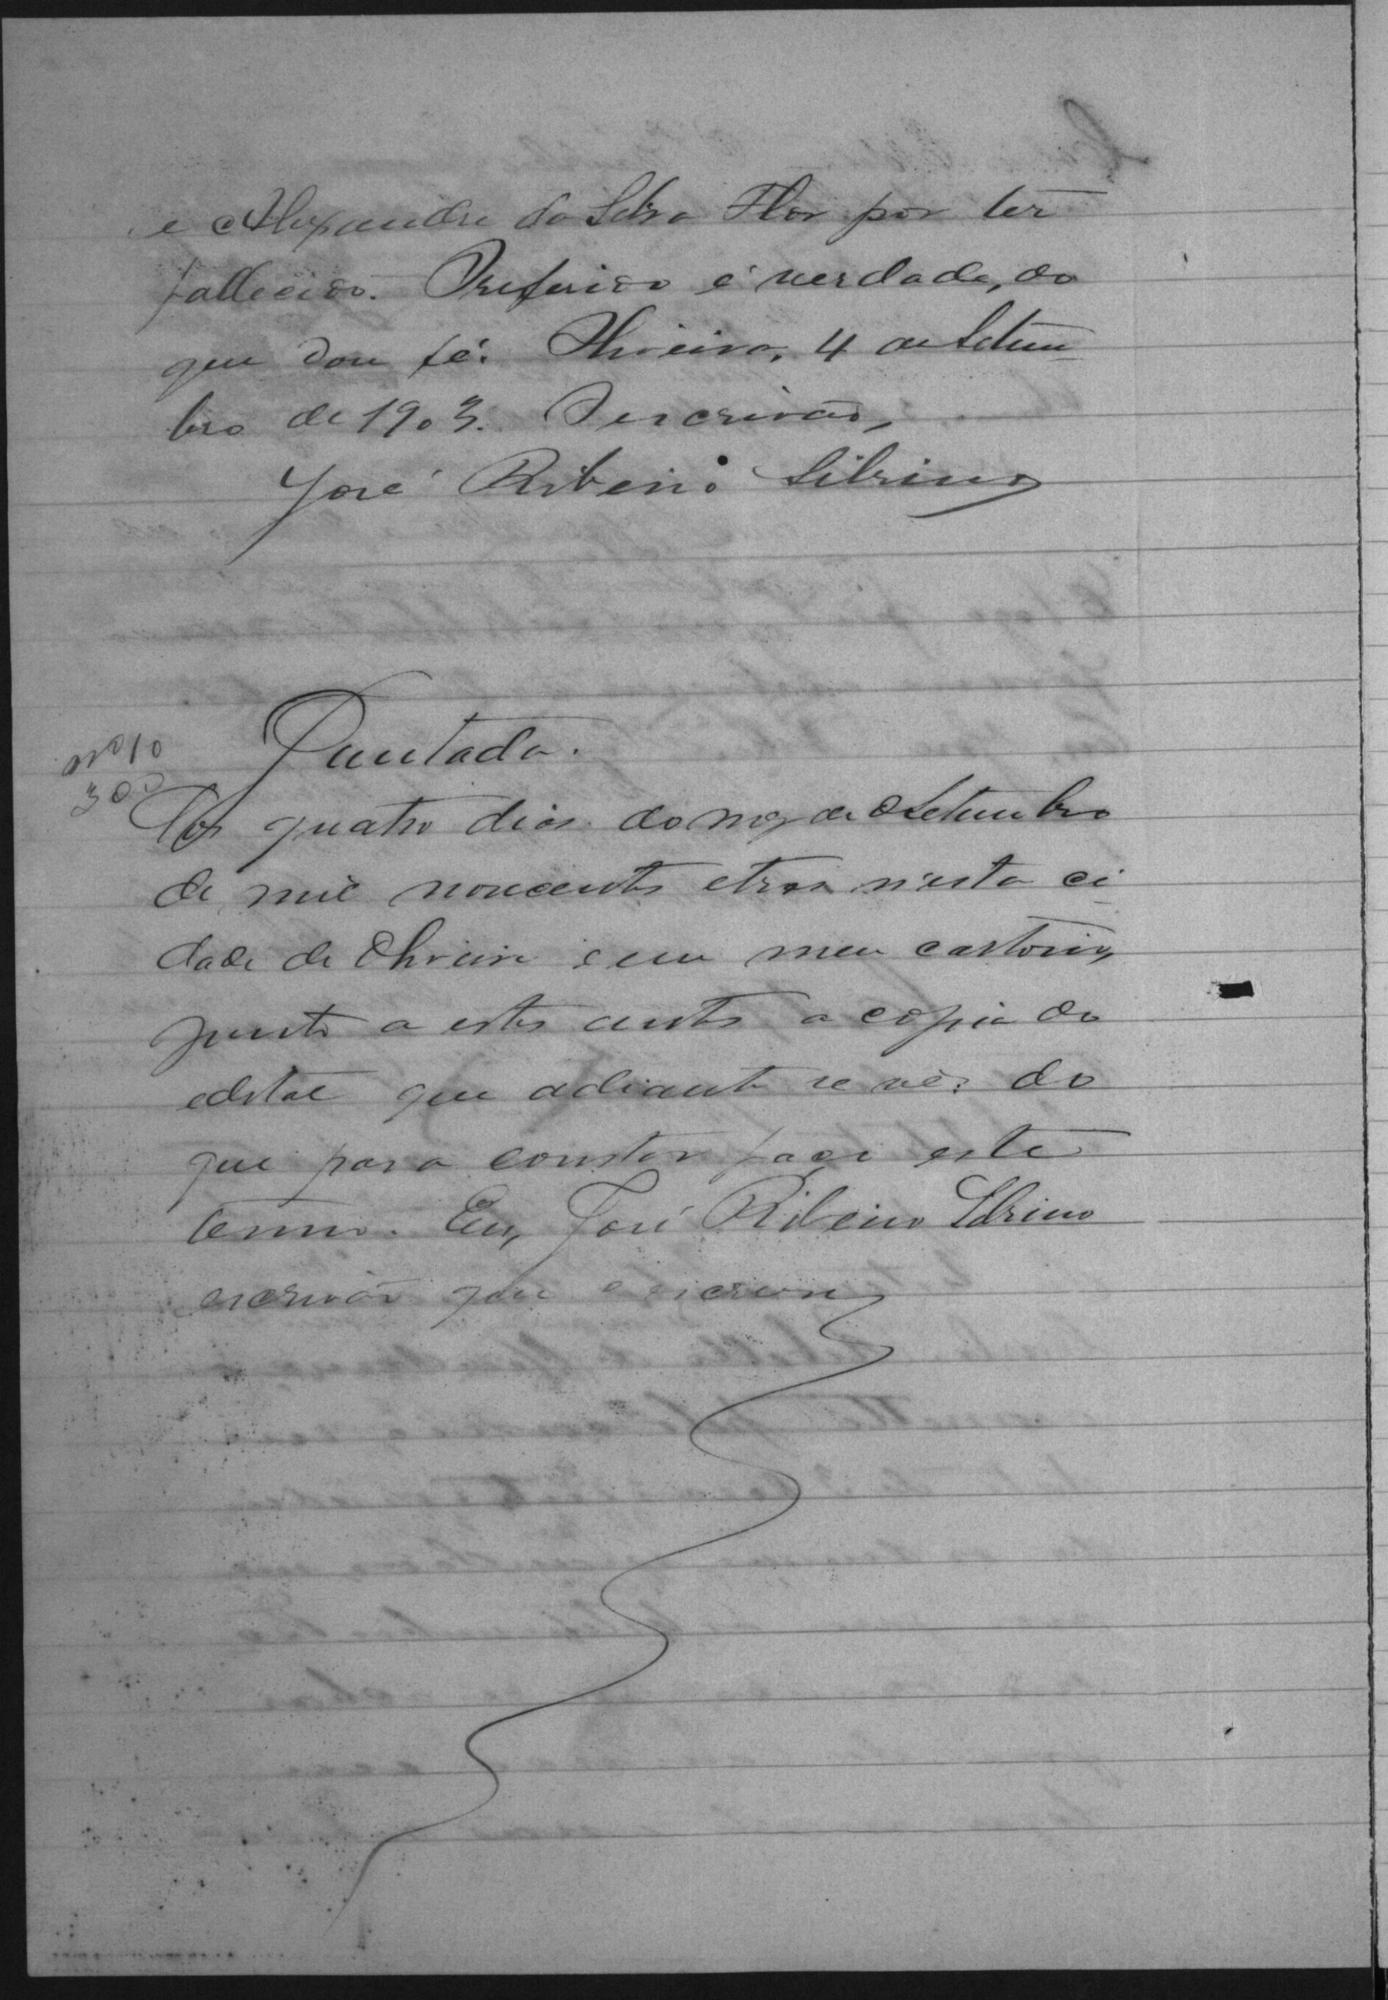 e Alexandre da Silva Flor por ter
fallecido. O referido é verdade, do
que dou fé. Oliveira, 4 de Setem-
bro de 1903. O escrivão,
José Ribeiro Silvino
Juntada.
nº 10
300
Aos quatro dias do mez de Setembro
de mil novecentos e tres n'esta ci-
dade de Oliveira e em meu cartorio,
junto a estes autos a copia do
edital que adiante se vê; do
que para constar faço este
termo. Eu, José Ribeiro Silvino
escrivão que o escrevi